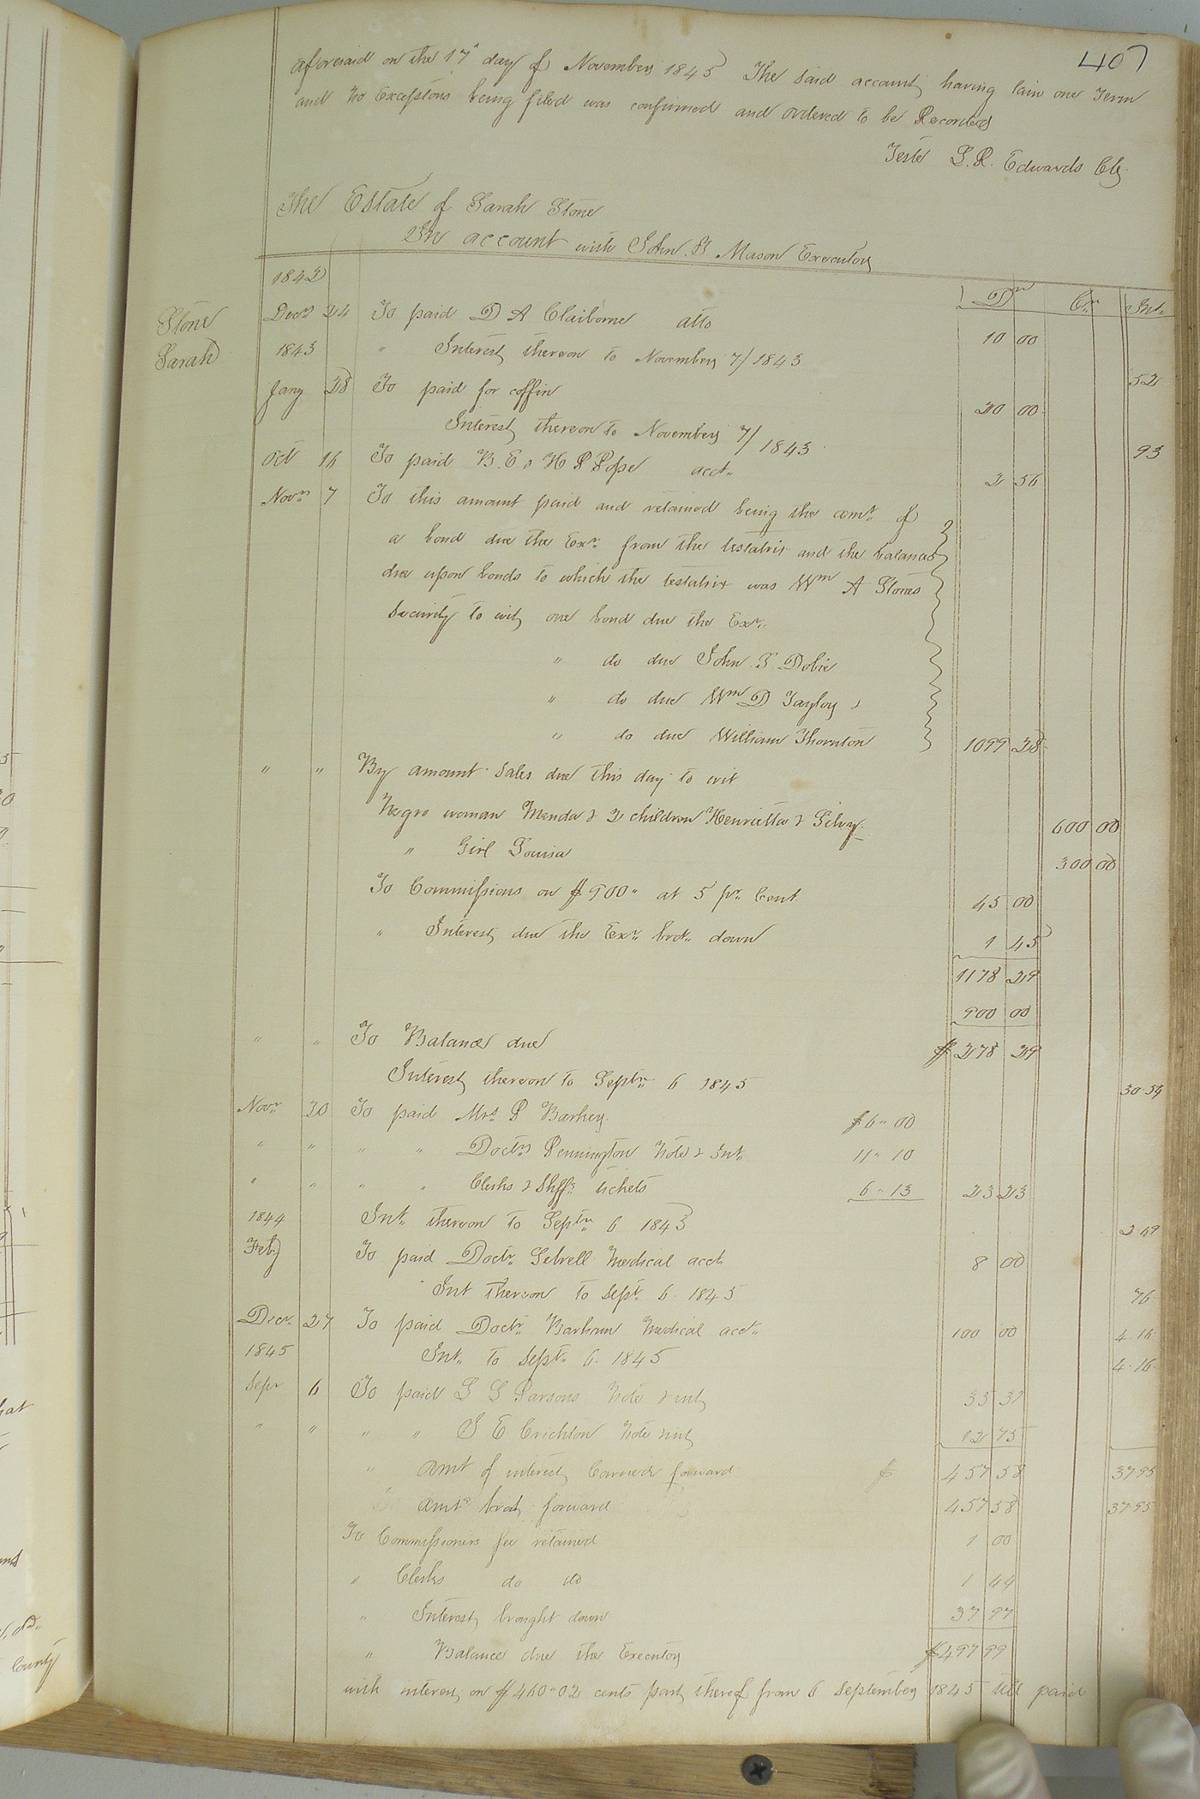 407
aforesaid on the 17th day of November 1845 The said account having lain one Term
and no Exceptions being filed was confirmed and ordered to be Recorded
Teste L. R. Edwards Clk.
The Estate of Sarah Stone
In account with John Y. Mason Executor
Stone
Sarah
Dr Cr Int.
1842
Decr 24 To paid D A Claiborne atto 10 00
1843 " Interest thereon to November 7/1843 52
Jany 28 To paid for coffin 20 00
Interest thereon to November 7/1843 93
Oct 16 To paid B. E. & H R Pope acct. 2 56
Novr 7 To this amount paid and retained being the amt. of
a bond due the Exr. from the testatrix and the balances
due upon bonds to which the testatrix was Wm A Stones
Security to wit, one bond due the Exr.
" do due John T Dobie
" do due Wm D Taylor &
" do due William Thornton 1099 28
" " By amount Sales due this day to wit
Negro woman Menda & 2 children Henrietta & Silvy 600 00
" Girl Louisa 300 00
To Commissions on $900" at 5 pr. Cent 45 00
" Interest due the Exr. brot. down 1 45
1178 29
900 00
" " To Balance due $278 29
Interest thereon to Septr. 6 1845 30.59
Novr 20 To paid Mrs P Barkey $6"00
" " " " Doctr Pennington Note & Int. 11"10
" " " " Clerks & Shffs. tickets 6"13 23 23
1844 Int. thereon to Septr 6 1845 2 49
Feby To paid Doctr. Sebrell Medical acct. 8 00
" Int thereon to Sept. 6 1845 76
Decr. 27 To paid Doctr. Barham Medical acct. 100 00 4.16
1845 Int. to Septr. 6. 1845 4.16
Sepr 6 To paid L S Parsons Note & int 35 31
" " " " S E Crichton Note & int 12 75
" Amt of interest Carried forward $ 457 58 37 95
" Amt. brot. forward 457 58 37 95
To Commissioners fee retained 1 00
" Clerks do do 1 44
" Interest brought down 37 97
" Balance due the Executor $497 99
with interest on $460"02 cents part thereof from 6 September 1845 till paid